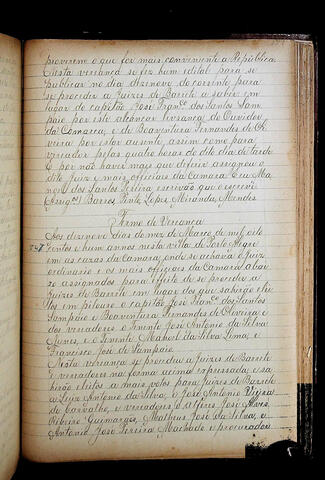 proverem o que for mais conveniente a Republica
Nesta vereança se fez hum edital para se
publicar no dia dezenove do corrente para
se proceder a Juizes de Barrete a saber em
lugar do capitão José Franco dos Santos Sam
paio por este alcançar livrança do Ouvidor
da Comarca, e de Boaventura Fernandes de Oli
veira por estar auzente, assim como para
vereador pelas quatro horas do dito dia de tarde
E por não haver mais que deferir assignou o
dito Juiz e mais officiaes da Camara Eu Ma
noel dos Santos Pereira escrivão que o escrevi
Assignos) Barros, Pinto, Lopes, Miranda, Mendes
Termo de Vereança
Aos dezenove dias do mez de Março de mil oito
centos e hum annos nesta villa de Porto Alegre
em as cazas da Camara, onde se achava o juiz
ordinario e os mais officiaes da Camara abai
xo assignados para effeito de se proceder a
Juizes de Barrete em lugar dos que sahirão elei
tos em pelouro o capitão José Franco dos Santos
Sampaio e Boaventura Fernandes de Oliveira e
dos vereadores o Tenente José Antonio da Silva
Nunes, e o Tenente Manoel da Silva Lima, e
Francisco José de Sampaio.
Nesta vereança se procedeu a Juizes de Barrete
e vereadores na forma acima expressada e sa
hirão eleitos a mais votos para Juizes de Barrete
a Luiz Antonio da Silva, e José Antonio Vieira
de Carvalho, e vereadores o Alferes José Alves
Ribeiro Guimarães, Matheus José da Silva, e
Antonio José Pereira Machado e procurador